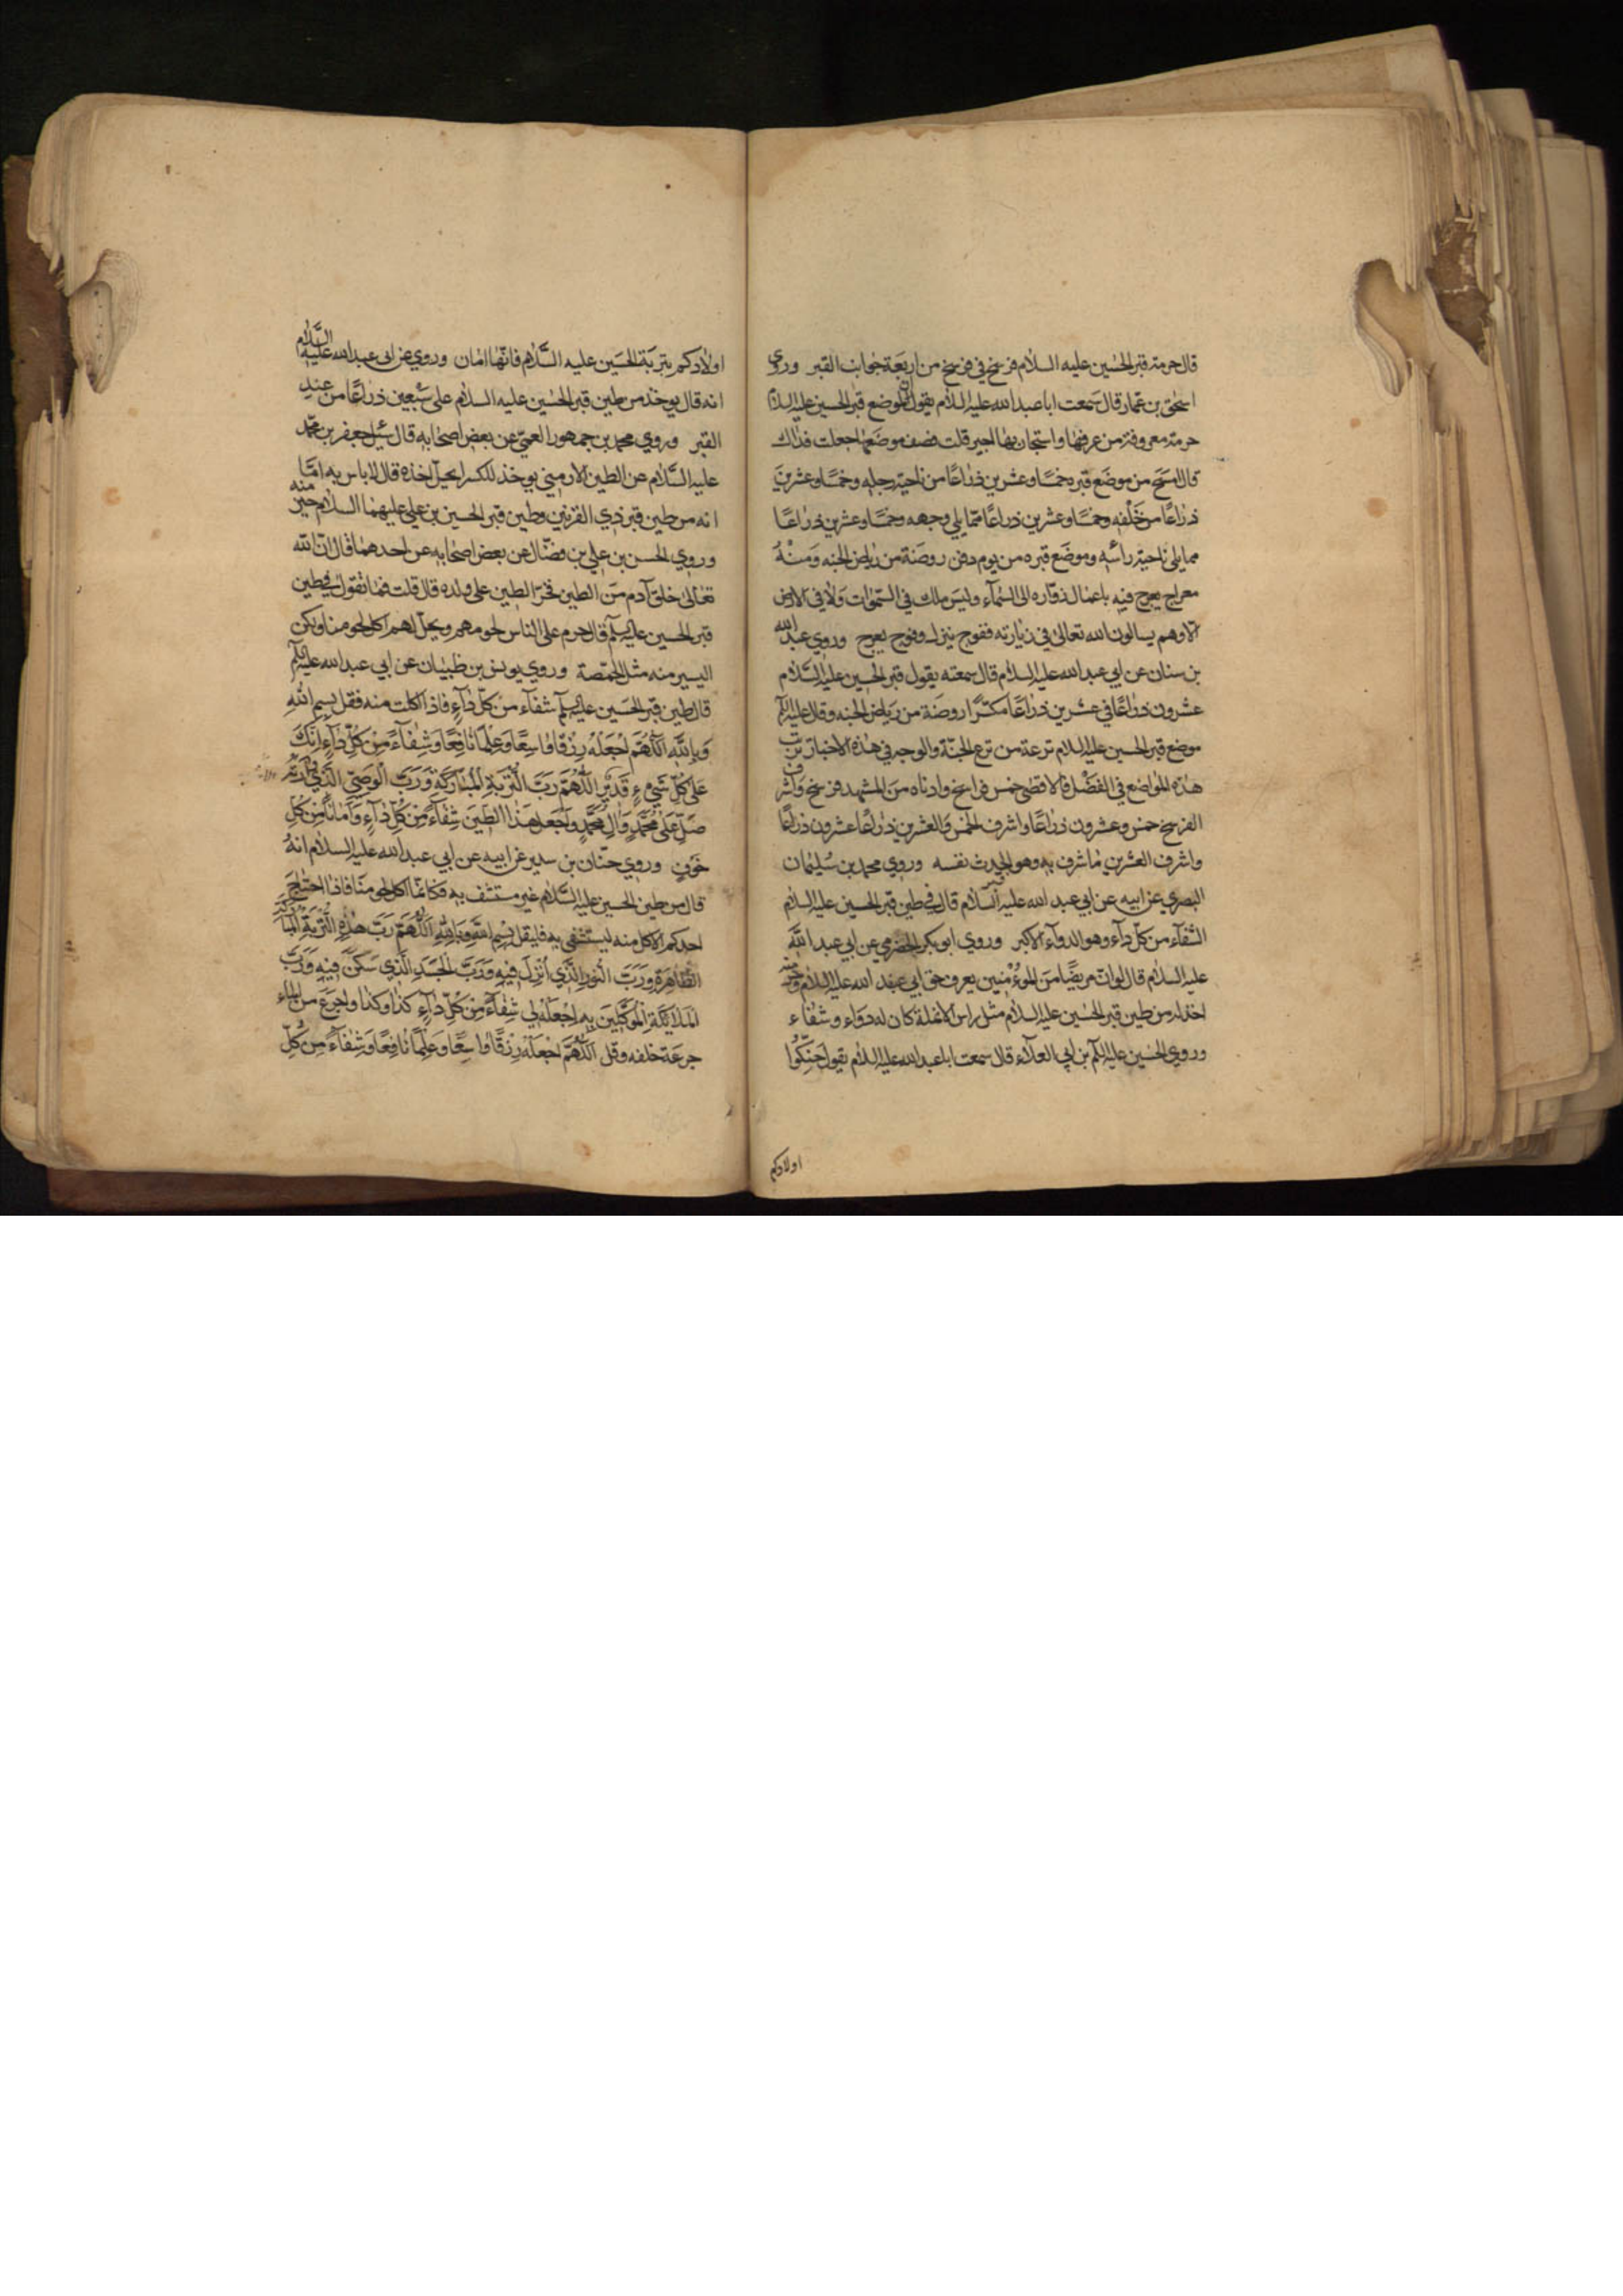 قال حرمة قبر الحسين عليه السلام فرسخ في فرسخ من اربعة جوانب القبر وروي
اسحق بن عمار قال سمعت ابا عبدالله عليه السلام يقول ان لموضع قبر الحسين عليه السلام
حرمة معروفة من عرفها واستجار بها اجير قلت فصف موضعها جعلت فداك
قال امسح من موضع قبره خمسا وعشرين ذراعا من ناحية رجليه وخمسا وعشرين
ذراعا من خلفه وخمسا وعشرين ذراعا مما يلي وجهه وخمسا وعشرين ذراعا
مما يلي ناحية راسه وموضع قبره من يوم دفن روضة من رياض الجنه ومنه
معراج يعرج فيه باعمال زواره الى السمآء وليس ملك في السموات ولا في الارض
الا وهم يسالون الله تعالى في زيارته ففوج ينزل وفوج يعرج وروي عبدالله
بن سنان عن ابي عبد الله عليه السلام قال سمعته يقول قبر الحسين عليه السلام
عشرون ذراعا في عشرين ذراعا مكسرا روضة من رياض الجنه وقال عليه السلم
موضع قبر الحسين عليه السلام ترعة من ترع الجنة والوجه في هذه الاخبار ترتب
هذه المواضع في الفضل فالاقصى خمس فراسخ وادناه من المشهد فرسخ واشرف
الفرسخ خمس وعشرون ذراعا واشرف الخمس والعشرين ذراعا عشرون ذراعا
واشرف العشرين ما شرف به وهو الجدث نفسه وروي محمد بن سليمان
البصري عن ابيه عن ابي عبد الله عليه السلام قال في طين قبر الحسين عليه السلام
الشفآء من كل دآء وهو الدوآء الاكبر وروي ابو بكر الحضرمي عن ابي عبد الله
عليه السلام قال لو ان مريضا من المؤمنين يعرف حق ابي عبد الله عليه السلام وحرمته
اخذ له من طين قبر الحسين عليه السلام مثل راس الانملة كان له دوآء وشفاء
وروي الحسين عليه السلم بن ابي العلآء قال سمعت ابا عبد الله عليه السلام يقول حنكوا
اولادكم
اولادكم بتربة الحسين عليه السلام فانها امان وروي عن ابي عبد الله عليه السلام
انه قال يوخذ من طين قبر الحسين عليه السلام على سبعين ذراعا من عند
القبر وروي محمد بن جمهور العمي عن بعض اصحابه قال سئل جعفر بن محمد
عليه السلام عن الطين الارميني يوخذ للكسر ايحل اخذه قال لا باس به اما
انه من طين قبر ذي القرنين وطين قبر الحسين بن علي عليهما السلام خير منه
وروي الحسن بن علي بن فضال عن بعض اصحابه عن احدهما قال ان الله
تعالى خلق آدم من الطين فحرم الطين على ولده قال قلت فما تقول في طين
قبر الحسين عليه السلم قال حرم على الناس لحومهم ويحل لهم اكل لحومنا ولكن
اليسير منه مثل الحمصة وروي يونس بن ظبيان عن ابي عبد الله عليه السلم
قال طين قبر الحسين عليه السلم شفآء من كل دآء فاذا اكلت منه فقل بسم الله
وبالله اللهم اجعله رزقا واسعا وعلما نافعا وشفآء من كل دآء انك
على كل شيء قدير اللهم رب التربة المباركة ورب الوصي الذي وارته
صل على محمد وال محمد واجعل هذا الطين شفآء من كل دآء وامانا من كل
خوف وروي حنان بن سدير عن ابيه عن ابي عبد الله عليه السلام انه
قال من طين الحسين عليه السلام غير مستشف به فكانما اكل لحومنا فاذا احتاج
احدكم الاكل منه ليستشفي به فليقل بسم الله وبالله اللهم رب هذه التربة المباركة
الطاهرة ورب النور الذي انزل فيه ورب الجسد الذي سكن فيه ورب
الملائكة الموكلين به اجعله لي شفآء من كل دآء كذا وكذا واجرع من الماء
جرعة خلفه وقل اللهم اجعله رزقا واسعا وعلما نافعا وشفآء من كل